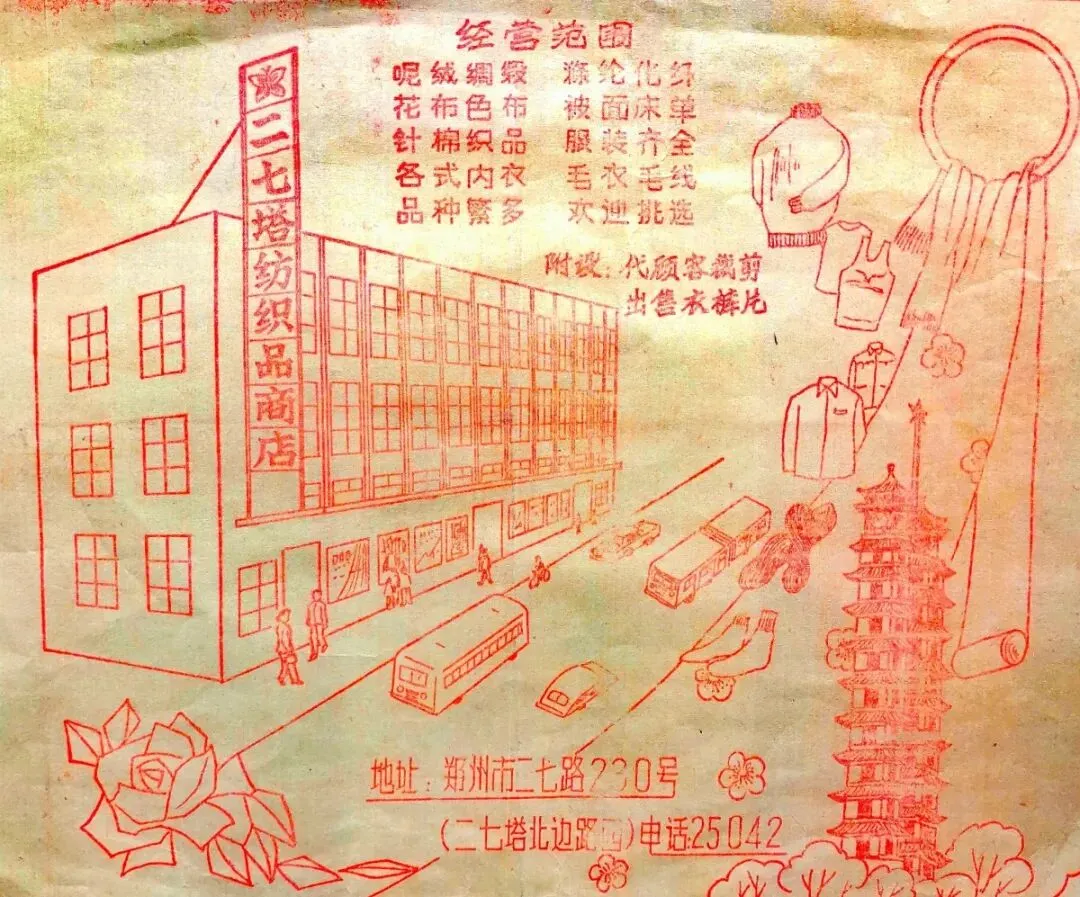 经营范围
呢绒绸缎 涤纶化纤
花布色布 被面床单
针棉织品 服装齐全
各式内衣 毛衣毛线
品种繁多 欢迎挑选
附设：代顾客裁剪
出售衣裤片
二七塔纺织品商店
地址：郑州市二七路230号
(二七塔北边路西)电话:25042